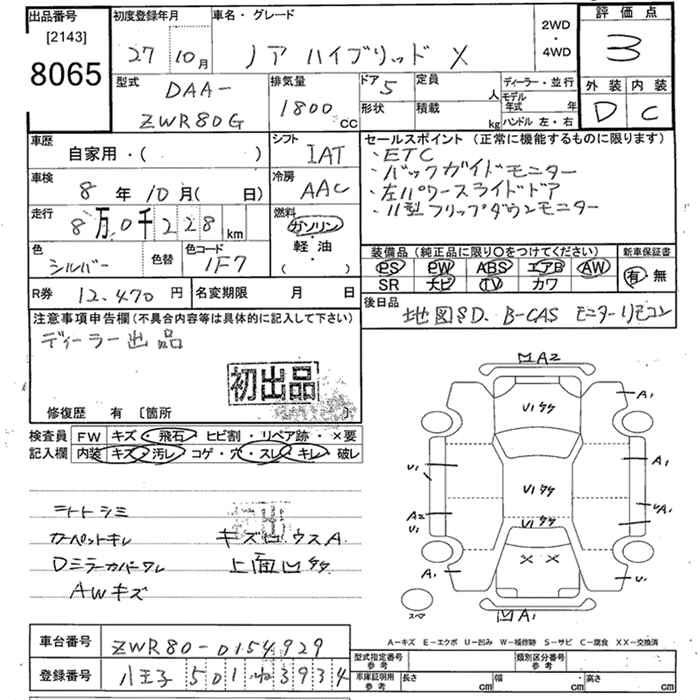 出品番号
[2143]
8065
初度登録年月
27 10月
車名・グレード
ノア ハイブリッド X
2WD
・
4WD
評価点
3
外装 内装
D C
型式
DAA-
ZWR80G
排気量
1800 CC
ドア 5
形状
定員 人
積載 kg
ディーラー・並行
モデル年式 年
ハンドル 左・右
車歴
自家用・( )
シフト
IAT
車検
8年10月( 日)
冷房
AAC
走行
8万0千228km
燃料
ガソリン
・
軽油
( )
色
シルバー
色替
色コード
1F7
R券 12,470円
名変期限 月 日
セールスポイント (正常に機能するものに限ります)
・ETC
・バックガイドモニター
・左パワースライドドア
・11型フリップダウンモニター
装備品(純正品に限り○をつけてください)
PS PW ABS エアB AW
SR ナビ TV カワ
新車保証書
有・無
後日品
地図SD. B-CAS モニターリモコン
注意事項申告欄(不具合内容等は具体的に記入して下さい)
ディーラー出品
初出品
修復歴 有 〔箇所 〕
検査員記入欄
FW キズ・飛石・ヒビ割・リペア跡・×要
内装 キズ・汚レ・コゲ・穴・スレ・キレ・破レ
シートシミ
カーペットキレ
Dミラーカバーワレ
AWキズ
キズヒウスA
上面凹
M A2
U1
A1
U1
A1
U1
U1
A2
U1
A1
U1
× ×
A1
U1
スペア
M A1
A-キズ E-エクボ U-凹み W-補修跡 S-サビ C-腐食 XX-交換済
車台番号
ZWR80-0154929
登録番号
八王子 501 ね 3934
型式指定番号
参考
類別区分番号
参考
車庫証明用
参考
長さ cm
・幅 cm
・高さ cm